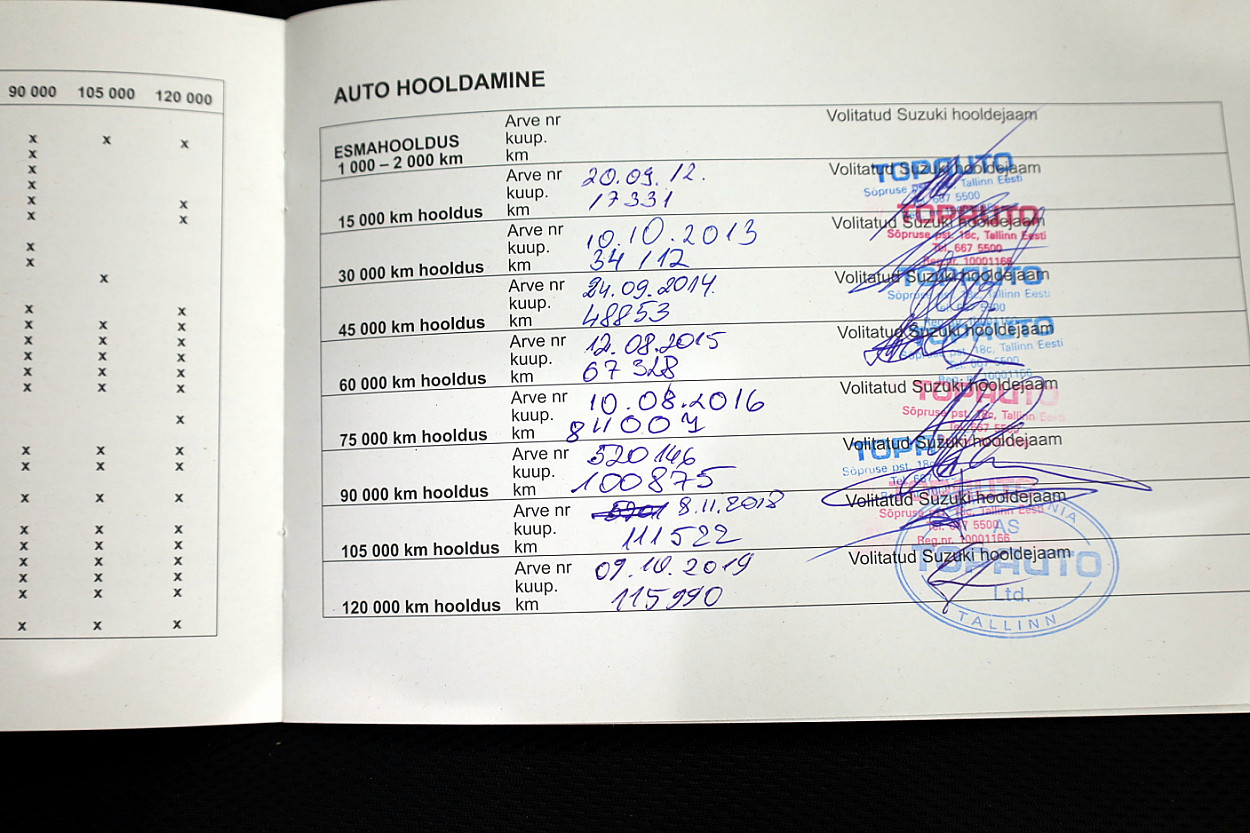 90 000 105 000 120 000
x x x
x
x
x
x x
x x
x
x
x
x x
x x x
x x x
x x x
x x x
x x x
x
x x x
x x x
x x x
x x x
x x x
x x x
x x x
x x x
x x x
AUTO HOOLDAMINE
ESMAHOOLDUS
1 000 – 2 000 km
Arve nr
kuup.
km
Volitatud Suzuki hooldejaam
15 000 km hooldus
Arve nr
kuup. 20.09.12.
km 17331
Volitatud Suzuki hooldejaam
TOPAUTO
Tallinn Eesti
667 5500
30 000 km hooldus
Arve nr
kuup. 10.10.2013
km 34112
Volitatud Suzuki hooldejaam
TOPAUTO
Sõpruse pst. 18c, Tallinn Eesti
Tel. 667 5500
Reg.nr. 10001166
45 000 km hooldus
Arve nr
kuup. 24.09.2014.
km 48853
Volitatud Suzuki hooldejaam
TOPAUTO
60 000 km hooldus
Arve nr
kuup. 12.08.2015
km 67328
Volitatud Suzuki hooldejaam
TOPAUTO
pst. 18c, Tallinn Eesti
10001166
75 000 km hooldus
Arve nr
kuup. 10.08.2016
km 84007
Volitatud Suzuki hooldejaam
TOPAUTO
Sõpruse pst. 18c, Tallinn Eesti
90 000 km hooldus
Arve nr 520146
kuup.
km 100875
Volitatud Suzuki hooldejaam
Sõpruse pst.
105 000 km hooldus
Arve nr 8.11.2018
kuup.
km 111522
Volitatud Suzuki hooldejaam
Tel. 667 5500
Reg.nr. 10001166
120 000 km hooldus
Arve nr 09.10.2019
kuup.
km 115990
Volitatud Suzuki hooldejaam
AS
TOPAUTO
Ltd.
TALLINN